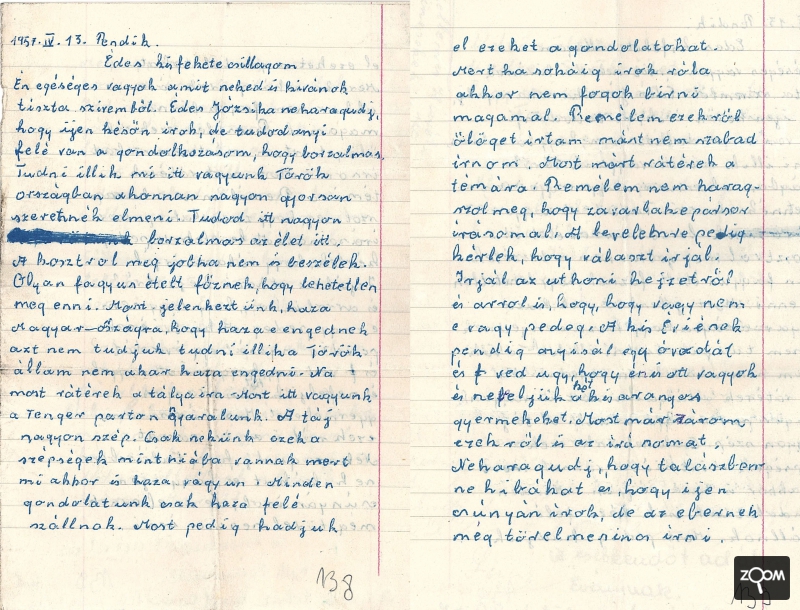 1957. IV. 13. Pendik.
Édes kis fekete csillagom
Én egéséges vagyok amit neked is kivánok
tiszta szivemből. Édes Józsika ne haragudj,
hogy ijen későn irok, de tudod anyi
felé van a gondolkozásom, hogy borzalmas.
Tudni illik mi itt vagyunk Török
országban ahonnan nagyon gyorsan
szeretnék elmeni. Tudod itt nagyon
borzalmas az élet itt.
A kosztrol meg jobha nem is beszélek.
Olyan fagyun ételt főznek, hogy lehetetlen
meg enni. Most jelenkeztünk, haza
Magyar-Országra, hogy haza e engednek
azt nem tudjuk tudni illika Török
állam nem akar haza engedni. Na
most rátérek a tályaira Most itt vagyunk
a Tenger parton Gyaralunk. A táj
nagyon szép. Csak nekünk ezek a
szépségek mint hiába vannak mert
mi akkor is haza vágyun. Minden
gondolatunk csak haza felé
szállnak. Most pedig hadjuk
138
el ezeket a gondolatokat.
Mert ha sokáig irok róla
akkor nem fogok birni
magamal. Remélem ezekről
ölöget irtam márt nem szabad
irnom. Most márt rátérek a
témára. Remélem nem harag-
szol meg, hogy zavarlak e pársor
irásomal. A levelemre pedig
kérlek, hogy választ irjál.
Irjál az uthoni hejzetről
és arrol is, hogy, hogy vagy nem
e vagy pedog. A kis Éviének
pendig anyisál egy óvodát
és ved ugy, hogy én is ott vagyok
és nefeljük a két kis aranyos
gyermeket. Most már zárom
ezekről is az irásomat.
Ne haragudj, hogy talászben
ne hibákat és, hogy ijen
csúnyán irok, de az ebernek
még törelmeninos irni.
ZOOM